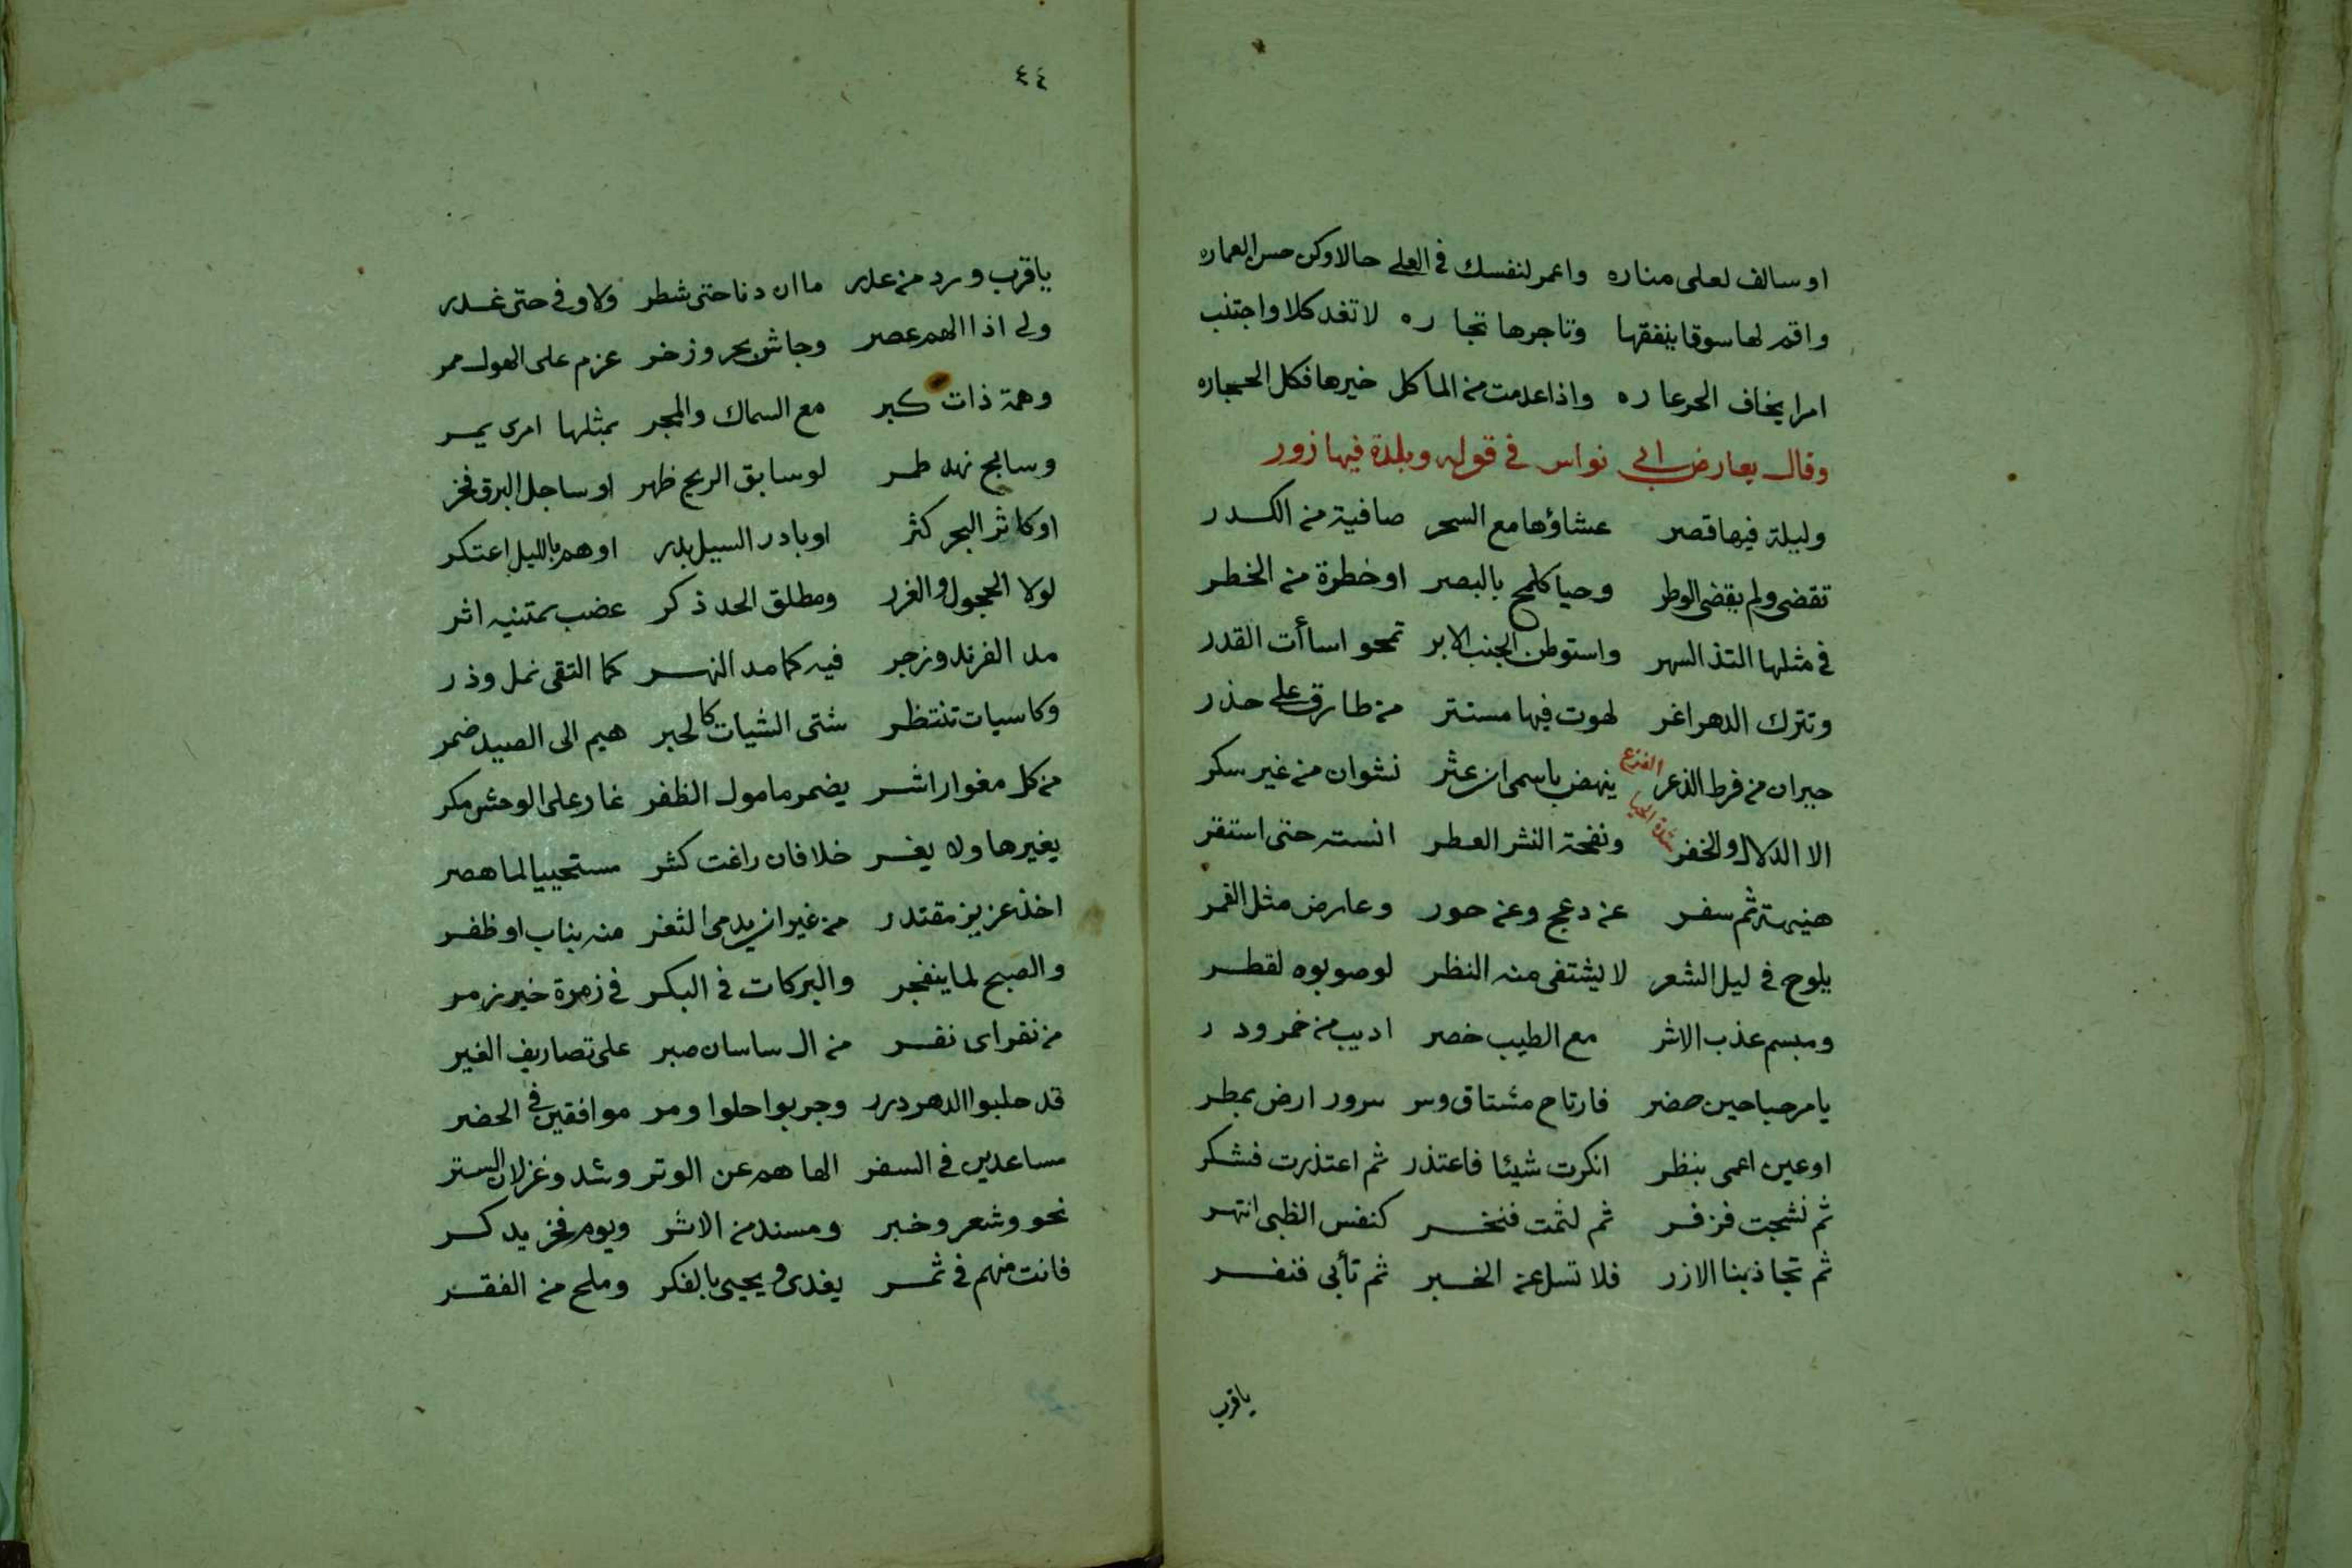 او سالف لعلى مناره واعمر لنفسك في العلى حالا وكن حسن العماره
واقم لها سوقا ينفقها وتاجرها تجاره لا تغد كلا واجتنب
امرا يخاف الحر عاره واذا عدمت من الماكل خيرها فكل الحجاره
وقال يعارض ابي نواس في قوله وبلدة فيها زور
وليلة فيها قصر عشاؤها مع السحر صافية من الكدر
تقضى ولم يقضى الوطر وحيا كلمح بالبصر او خطرة من الخطر
في مثلها التذ السهر واستوطن الجنب الابر تمحو اساأت القدر
وتترك الدهر اغر لهوت فيها مستتر من طارق على حذر
حيران من فرط الذعر ينهض باسمى ان عثر نشوان من غير سكر
الفزع
الا الدلال والخفر ونفحة النشر العطر انسته حتى استقر
شدة الحيا
هنيهة ثم سفر عن دعج وعن حور وعارض مثل القمر
يلوح في ليل الشعر لا يشتفى منه النظر لو صوبوه لقطر
ومبسم عذب الاشر مع الطيب خصر اديب من خمر ودر
يا مرحبا حين حضر فارتاح مشتاق وسر سرور ارض بمطر
او عين اعمى بنظر انكرت شيئا فاعتذر ثم اعتذرت فشكر
ثم نشجت فزفر ثم لثمت فنخر كنفس الظبى انتهر
ثم تجاذبنا الازر فلا تسل عن الخبر ثم تأبى فنفر
ياقرب
٤٤
ياقرب ورد من غدر ما ان دنا حتى شطر ولا وفى حتى غدر
ولى اذا الهم عصر وجاش بحر وزخر عزم على الهول ممر
وهمة ذات كبر مع السماك والمجر بمثلها امرى يمر
وسابح نهد طمر لو سابق الريح ظهر او ساجل البرق فخر
او كاثر البحر كثر او بادر السيل بدر او هم بالليل اعتكر
لولا الحجول والغرر ومطلق الحد ذكر عضب بمتنيه اثر
مد الفرند وزجر فيه كما مد النهر كما التقى نمل وذر
وكاسيات تنتظر شتى الشيات كالحبر هيم الى الصيد ضمر
من كل مغوار اشر يضمر مامول الظفر غار على الوحش مكر
يغيرها ولا يغر خلافان راغت كثر مستحييا لما هصر
اخذ عزيز مقتدر من غير ان يدمى الثغر منه بناب او ظفر
والصبح لما ينفجر والبركات في البكر في زمرة خير زمر
من نفر اى نفر من ال ساسان صبر على تصاريف الغير
قد حلبوا الدهر درر وجربوا حلوا ومر موافقين في الحضر
مساعدين في السفر الهاهم عن الوتر وشدو غزلان الستر
نحو وشعر وخبر ومسند من الاثر ويوم فخر يدكر
فانت منهم في ثمر يغدى ويحيى بالفكر وملح من الفقر